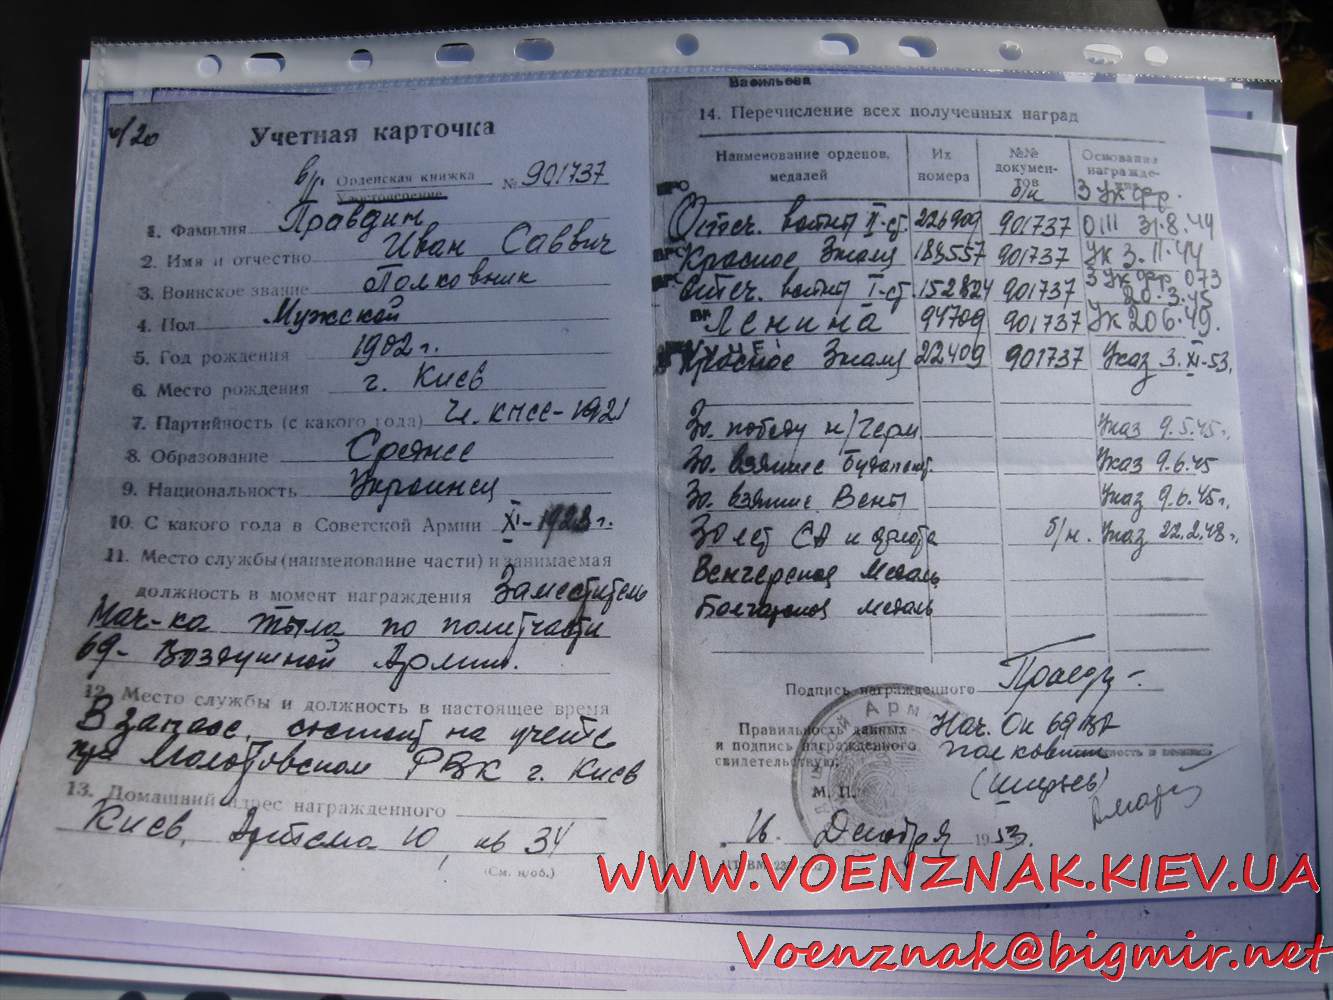 Учетная карточка
Орденская книжка № 901737
Удостоверение
1. Фамилия Правдин
2. Имя и отчество Иван Саввич
3. Воинское звание Полковник
4. Пол Мужской
5. Год рождения 1902 г.
6. Место рождения г. Киев
7. Партийность (с какого года) Чл. КПСС-1921
8. Образование Среднее
9. Национальность Украинец
10. С какого года в Советской Армии XI-1923 г.
11. Место службы (наименование части) и занимаемая
должность в момент награждения Заместитель
Нач-ка тыла по политчасти
69- Воздушной Армии.
12. Место службы и должность в настоящее время
В запасе, состоит на учете
при Молотовском РВК г. Киев
13. Домашний адрес награжденного
Киев, 10, кв 34
(См. н/об.)
Васильева
14. Перечисление всех полученных наград
Наименование орденов, медалей Их номера №№ документов Основание награждения
б/н 3 Ук фр.
Отеч. войны II-ст. 226909 901737 31.8.44
Красное Знамя 901737 Ук 3.11.44
Отеч. войны I-ст. 152824 901737 3 Ук фр. 073
20.3.45
Ленина 94709 901737 Ук 20.6.49.
Красное Знамя 22409 901737 Указ 3.XI-53.
За победу н/Герм Указ 9.5.45г.
За взятие Будапешт Указ 9.6.45
За взятие Вены Указ 9.6.45г.
30 лет СА и флота б/н. Указ 22.2.48г.
Венгерская Медаль
Болгарская медаль
Подпись награжденного
Правильность данных
и подпись награжденного
свидетельствую:
Нач. Ок 69 ВА
полковник
М. П.
16 Декабря 1953г.
WWW.VOENZNAK.KIEV.UA
Voenznak@bigmir.net